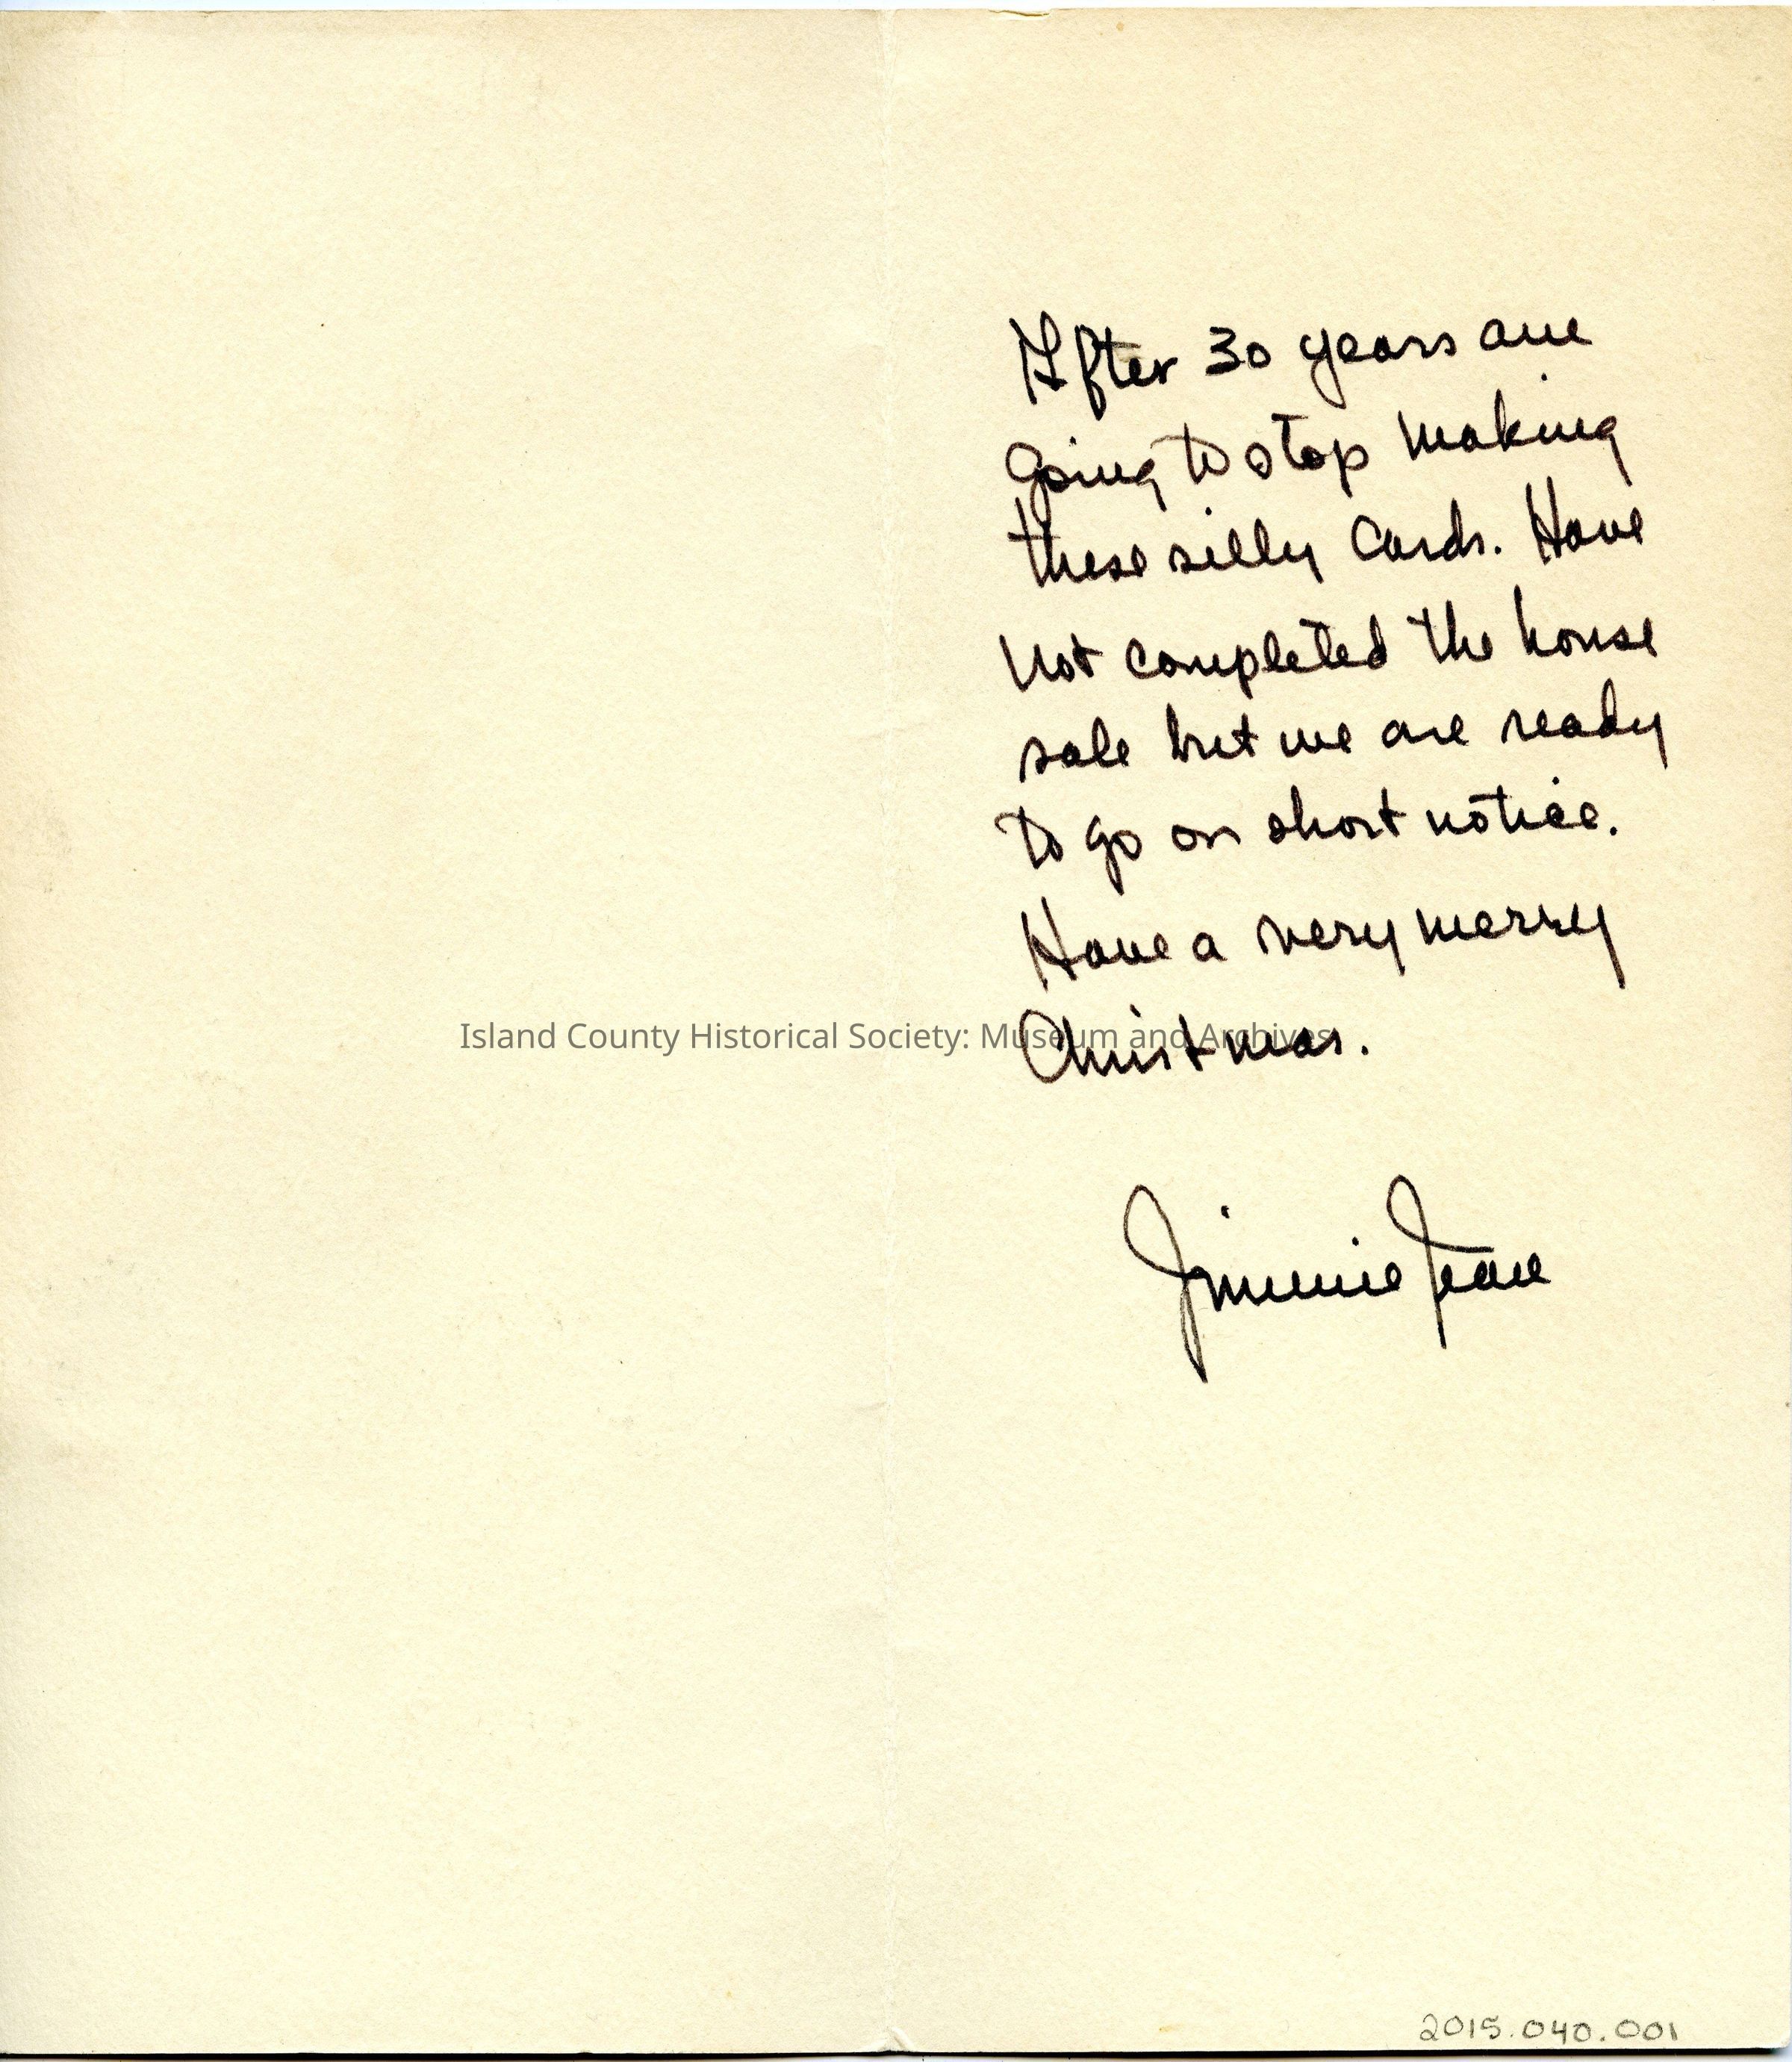 After 30 years am
going to stop making
these silly cards. Have
not completed the house
sale but we are ready
to go on short notice.
Have a very merry
Christmas.
Jimmie Jean
Island County Historical Society: Museum and Archives
2015.040.001